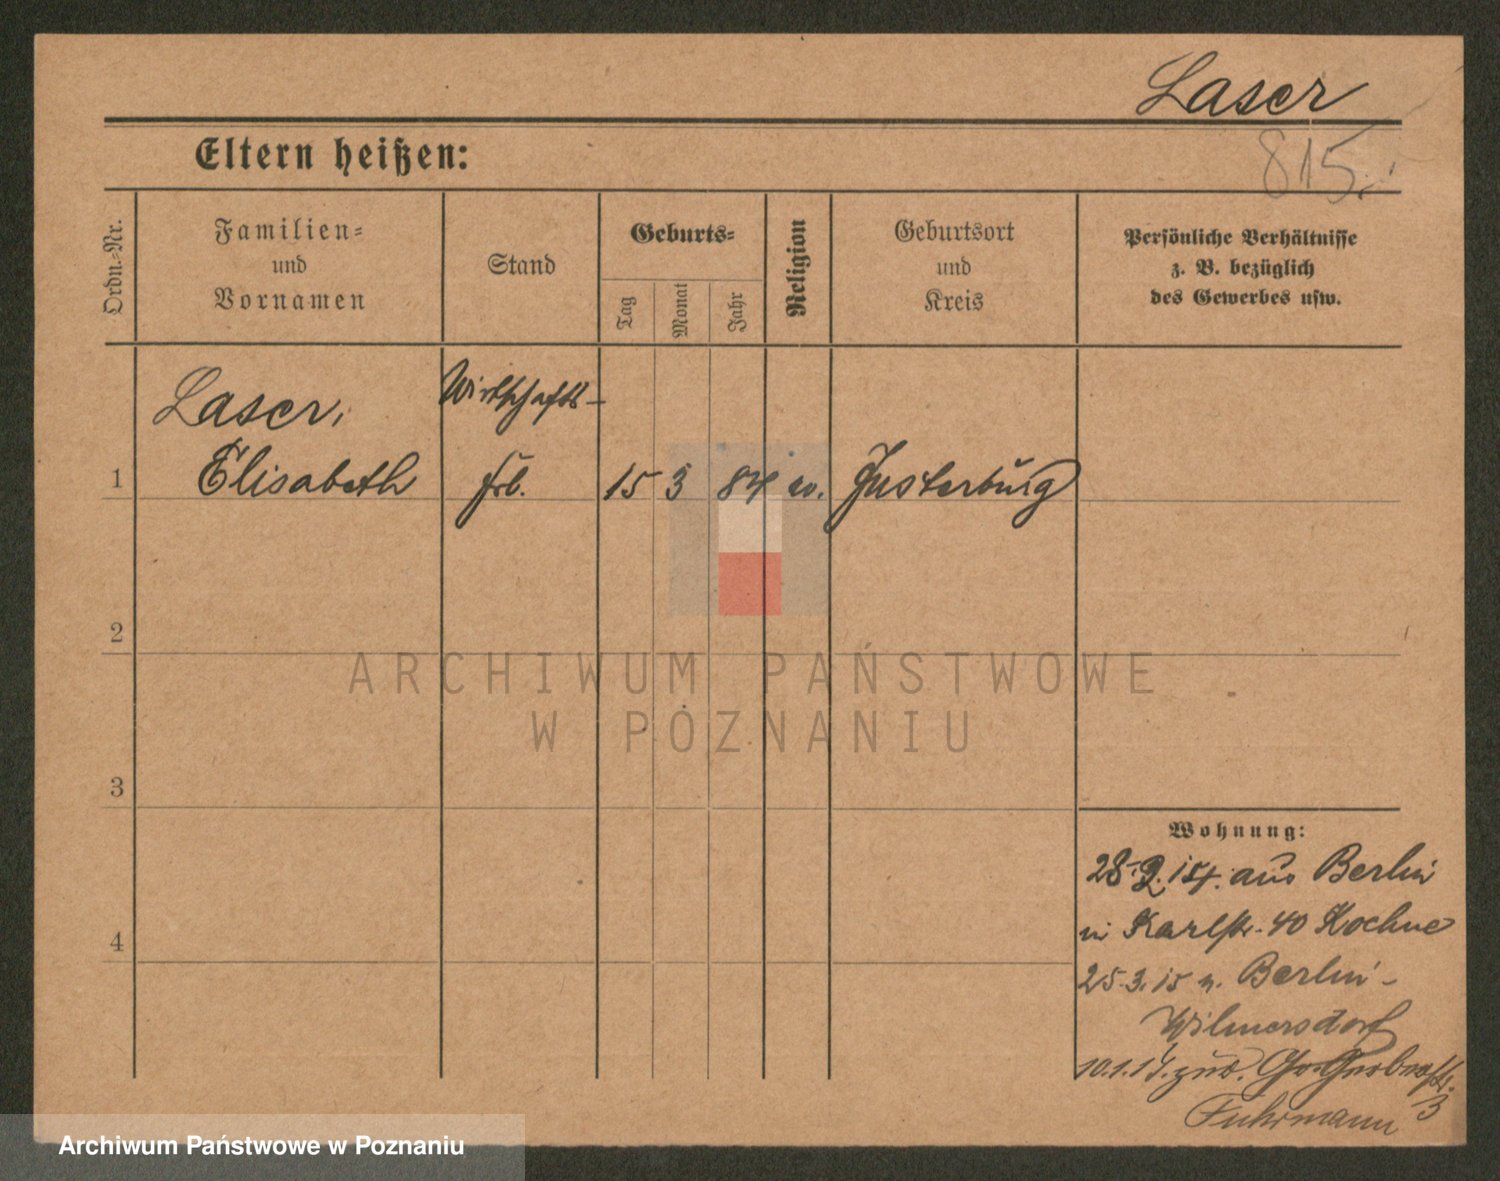 Laser
815.
Eltern heißen:
Ordn.-Nr.
Familien-
und
Vornamen
Stand
Geburts-
Tag
Monat
Jahr
Religion
Geburtsort
und
Kreis
Persönliche Verhältnisse
z. B. bezüglich
des Gewerbes usw.
Laser,
Wirtschafts-
1 Elisabeth frl. 15 3 84 Insterburg
2
3
4
ARCHIWUM PAŃSTWOWE
W POZNANIU
Wohnung:
aus Berlin
Karlstr. 40
25.3.15 n. Berlin-
Wilmersdorf
zur. Gr.
3
Fuhrmann
Archiwum Państwowe w Poznaniu